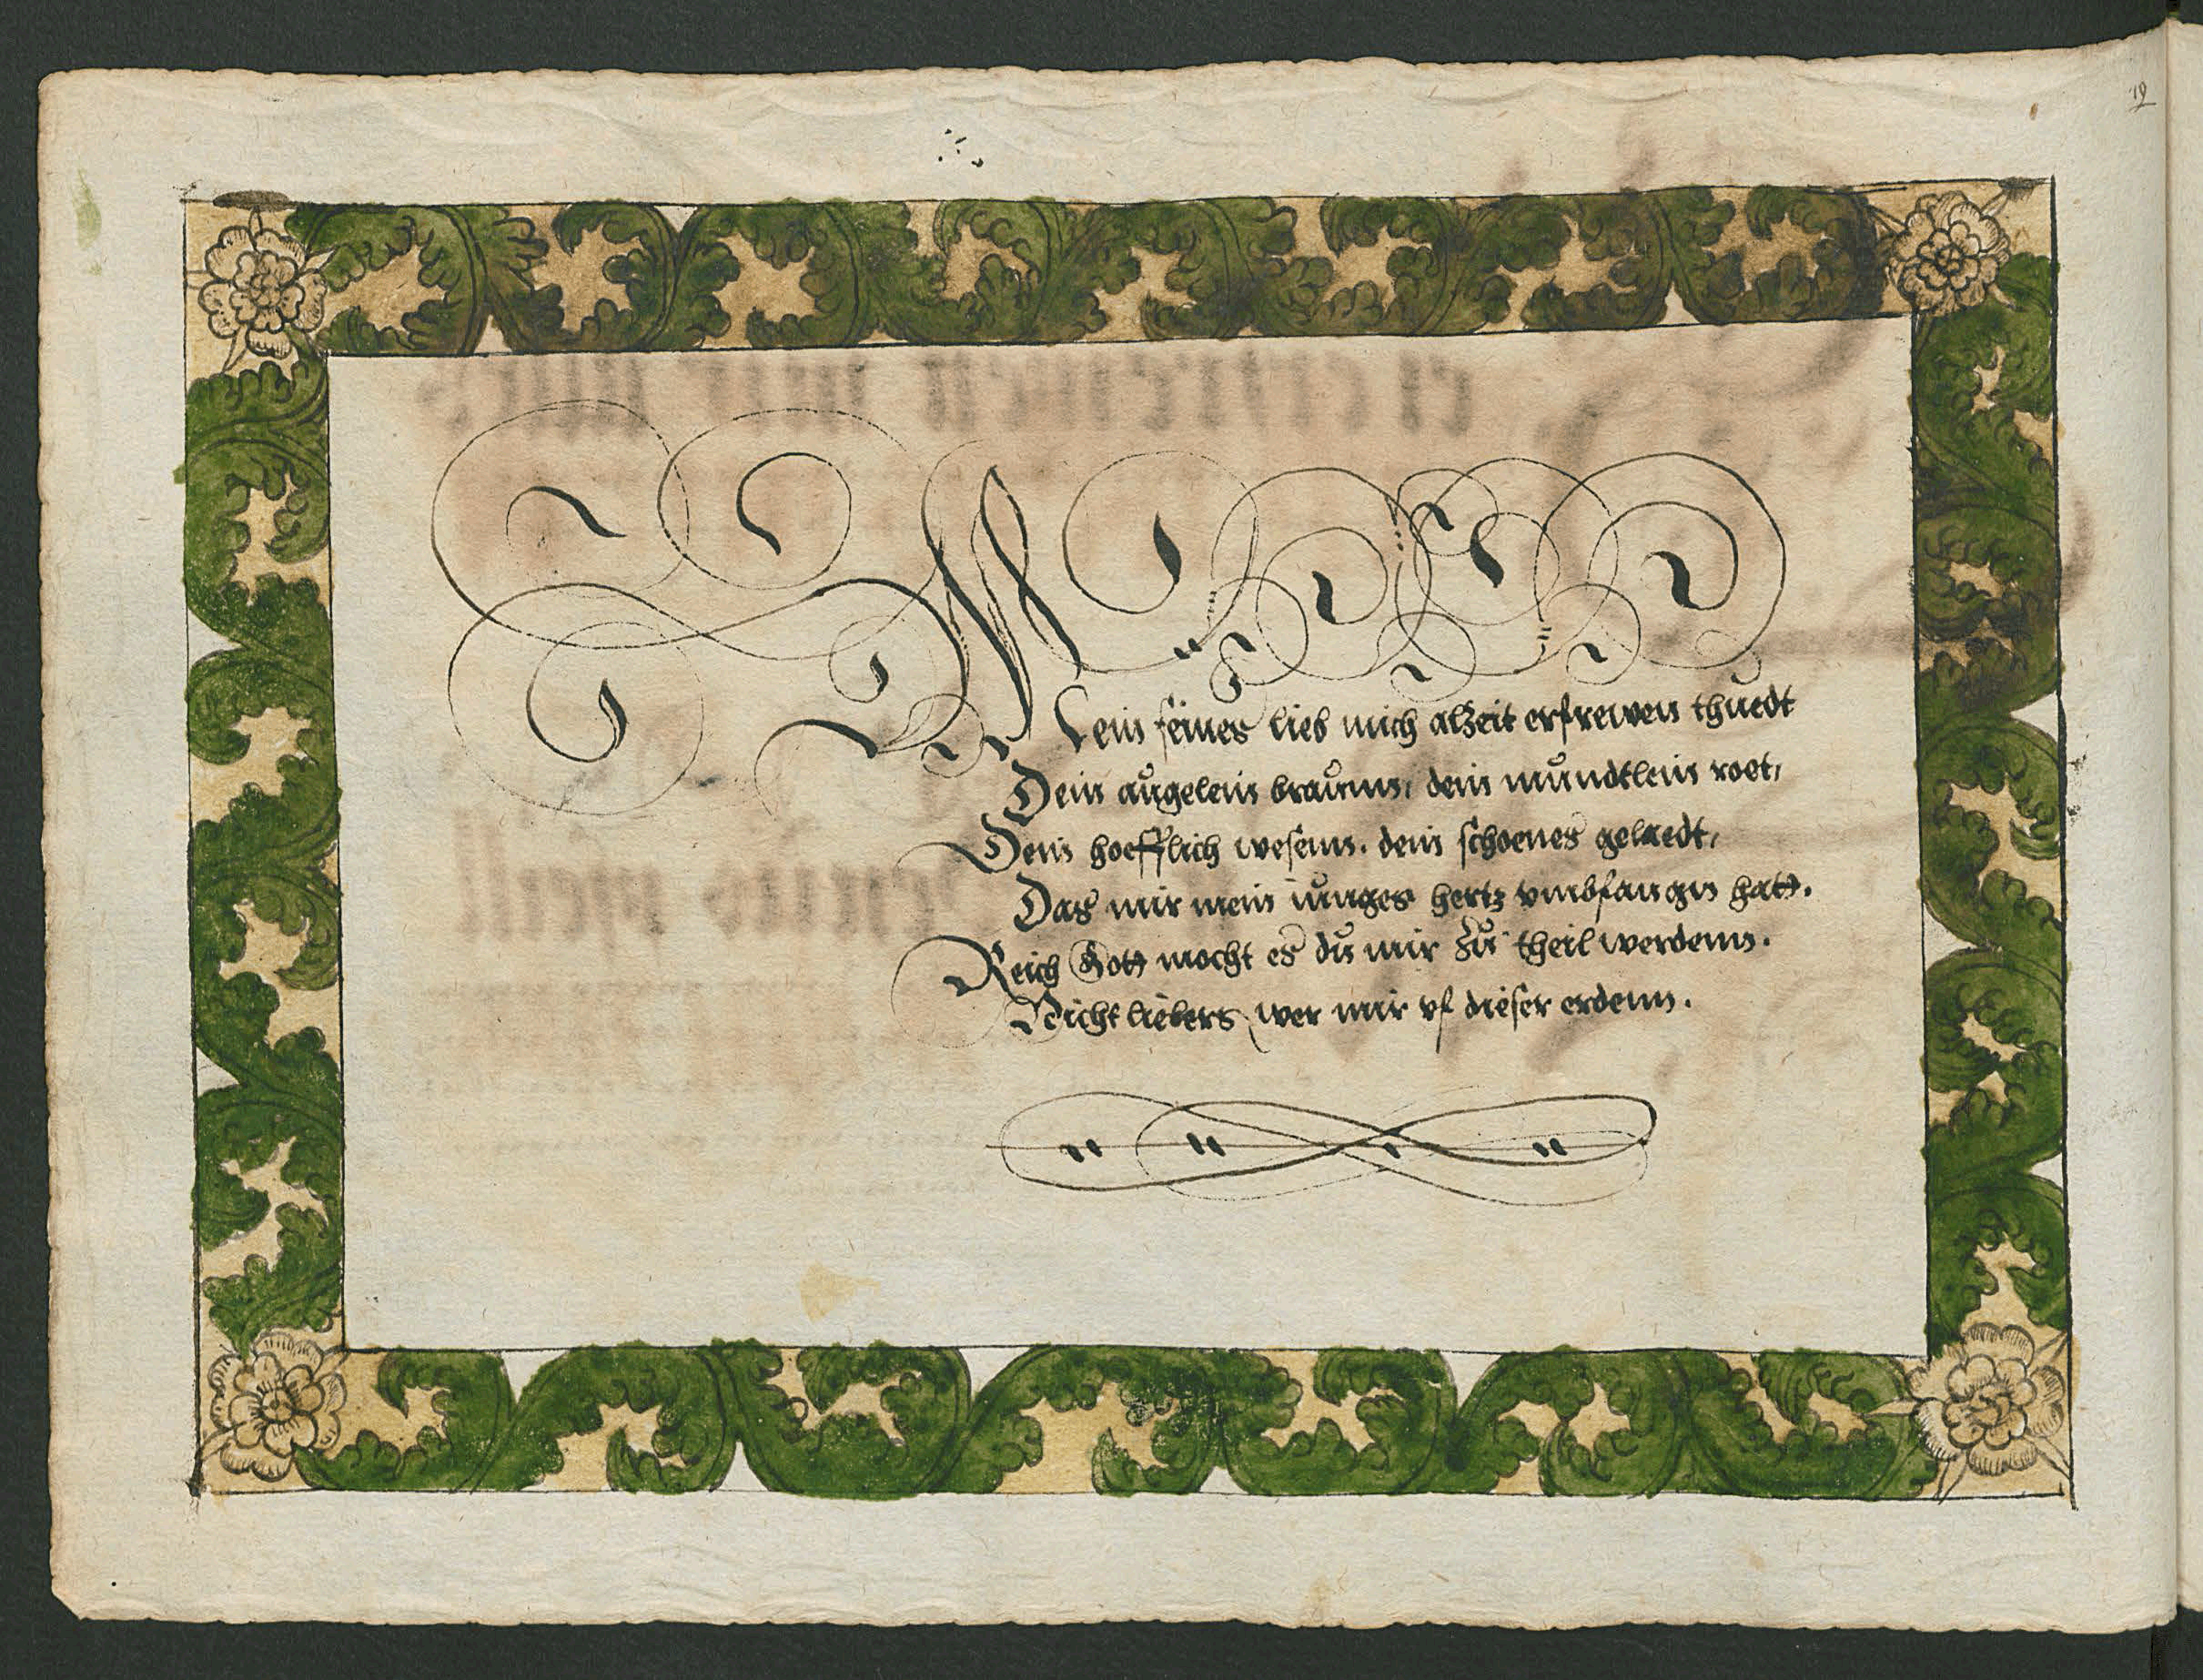 19
Mein feines lieb mich alzeit erfrewen thuedt
Dein augelein braunn, dein mundtlein roet,
Dein hoefflich wesenn. dein schoenes gelaedt,
Das mir mein iunges hertz vmbfangen hatt.
Reich Gott mocht es du mir zu theil werdenn.
Nicht liebers wer mir vf dieser erdenn.